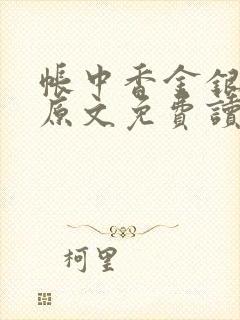 帳中香金銀
原文免費讀
柯里